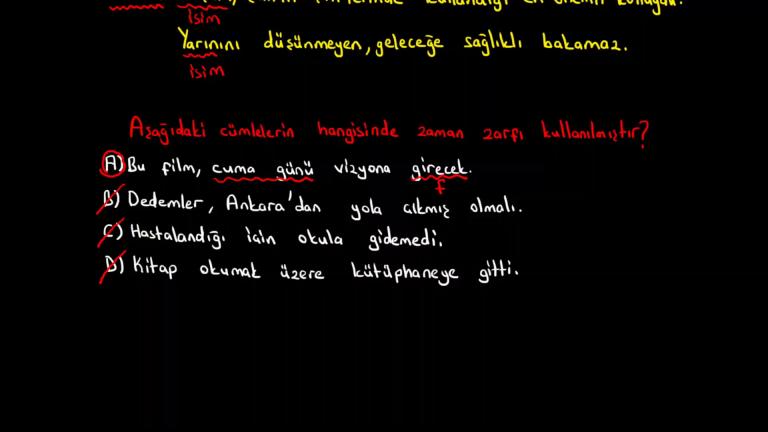 isim
Yarınını düşünmeyen, geleceğe sağlıklı bakamaz.
isim
Aşağıdaki cümlelerin hangisinde zaman zarfı kullanılmıştır?
A) Bu film, cuma günü vizyona girecek.
f
B) Dedemler, Ankara'dan yola çıkmış olmalı.
C) Hastalandığı için okula gidemedi.
D) Kitap okumak üzere kütüphaneye gitti.